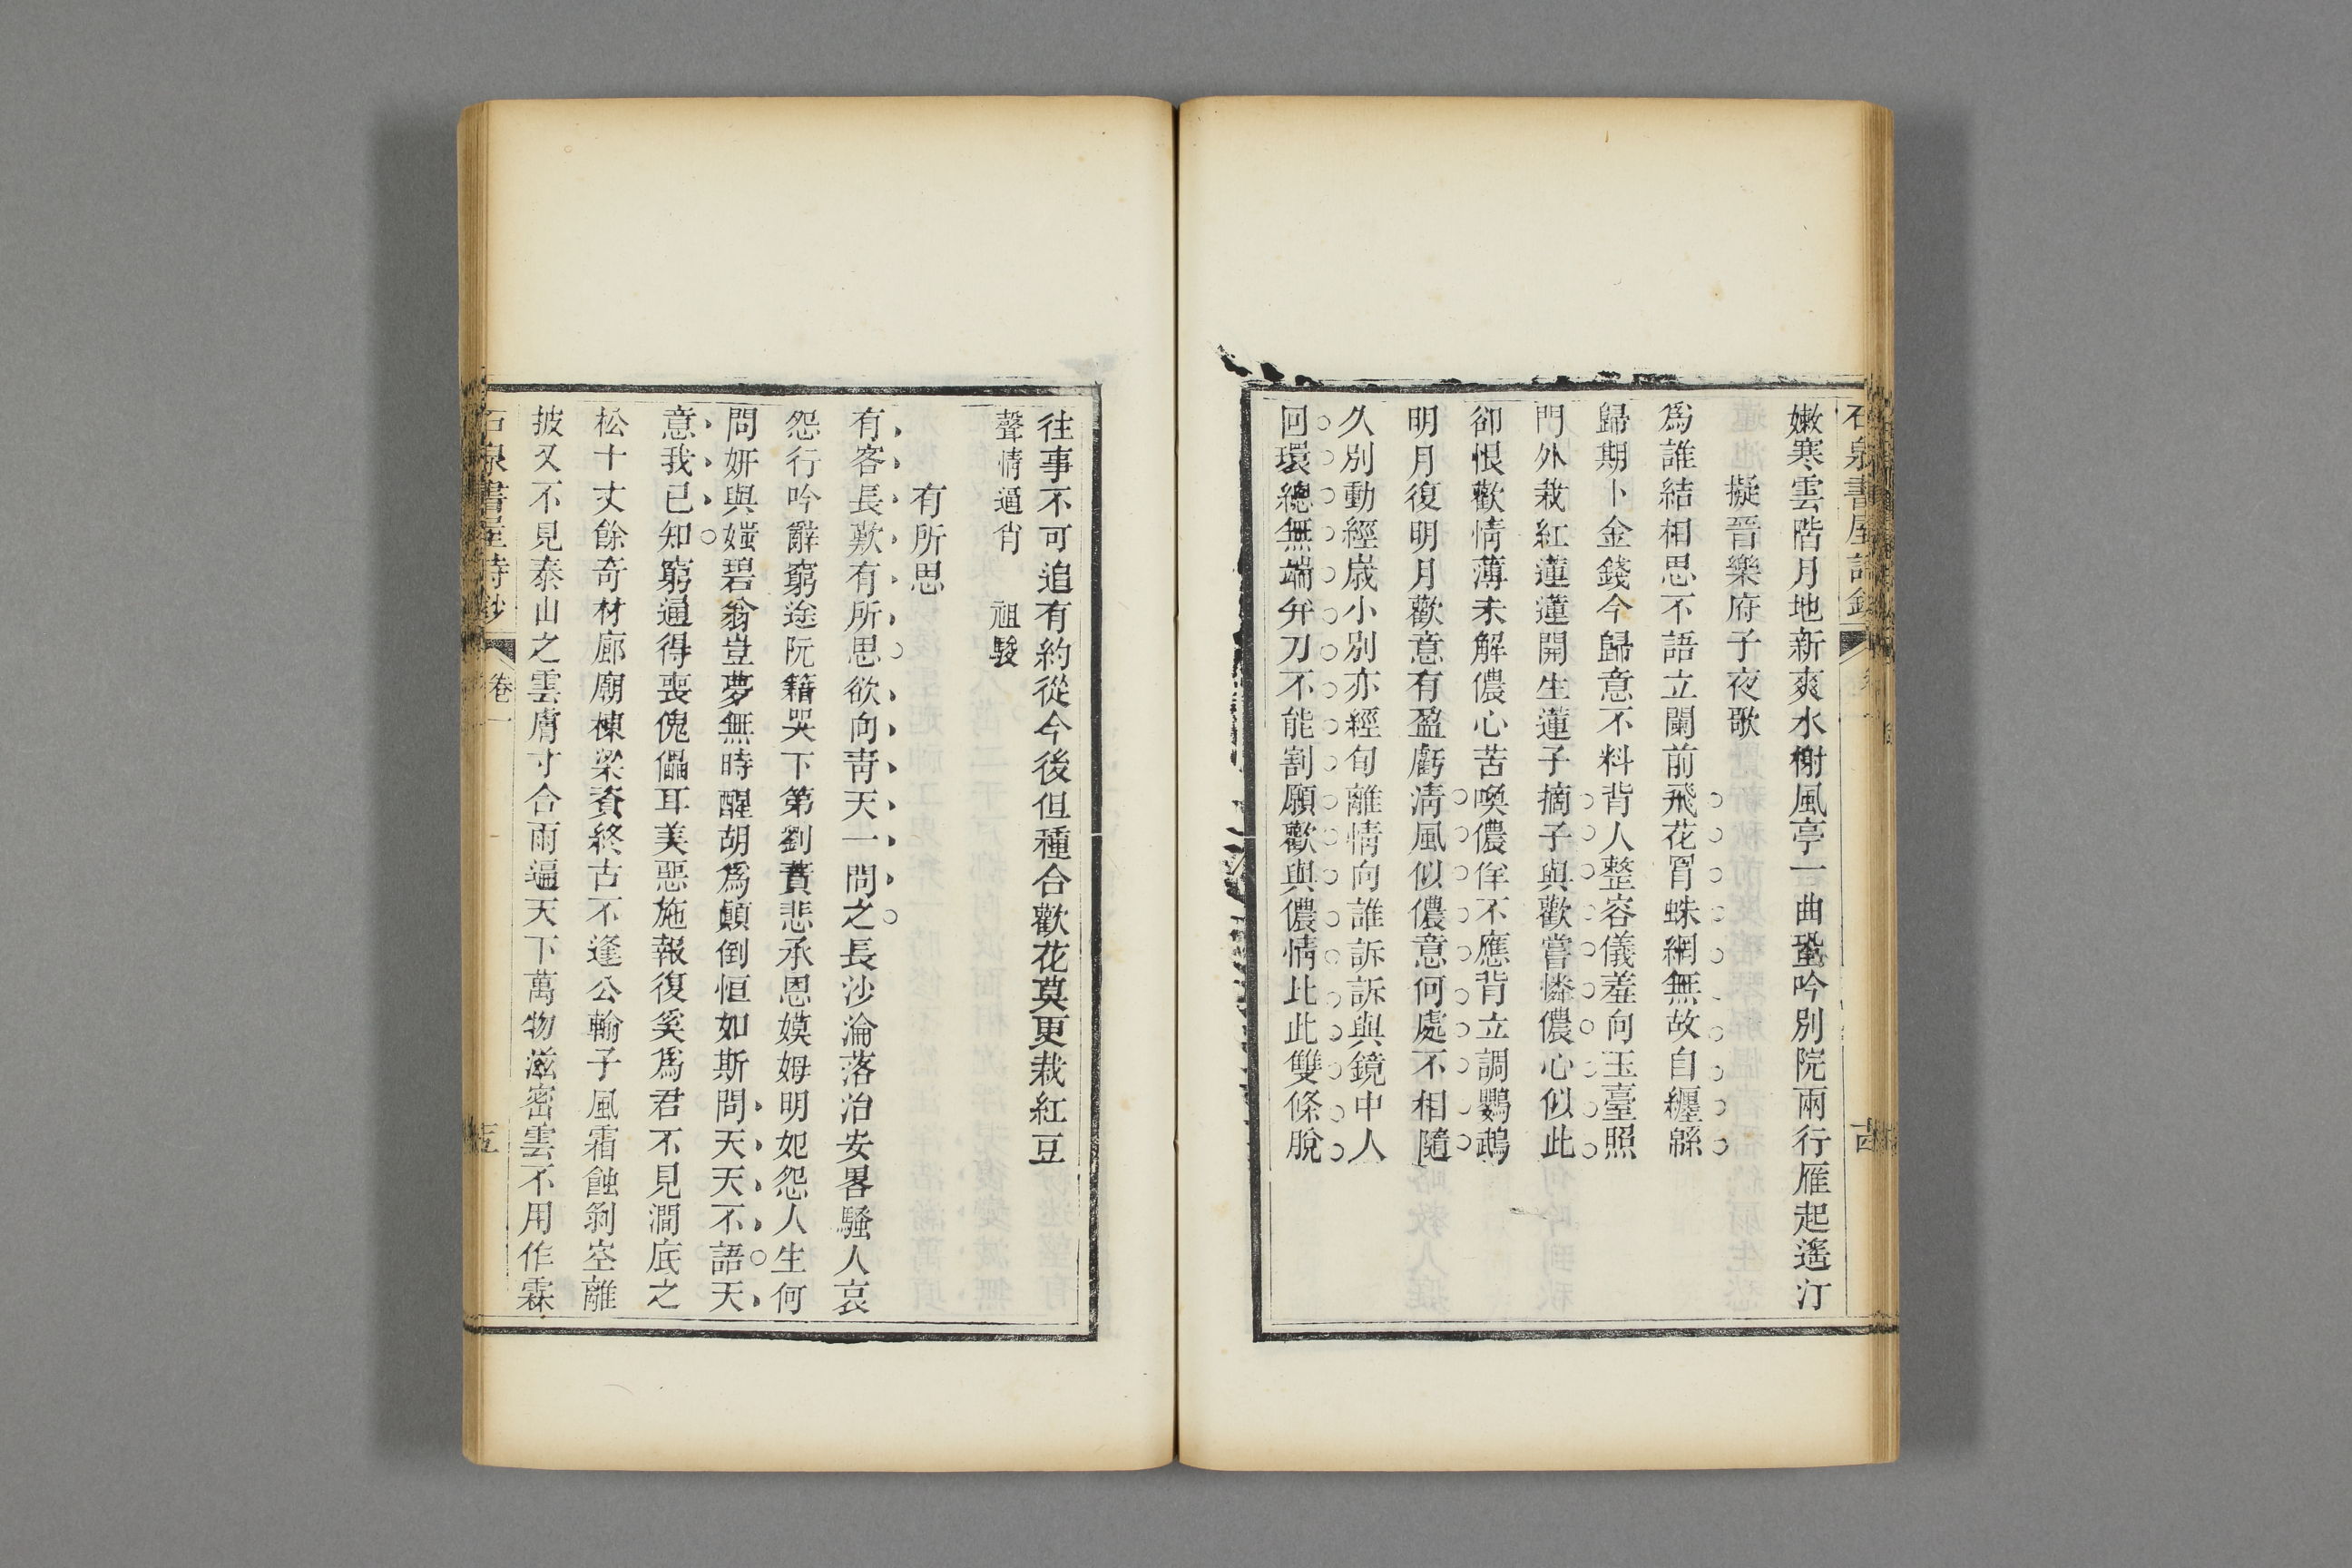 石泉書屋詩鈔
嫩寒雲階月地新爽水榭風亭一曲蛩吟別院兩行雁起遙汀
擬晉樂府子夜歌
爲誰結相思不語立闌前飛花罥蛛網無故自纏緜
歸期卜金錢今歸意不料背人整容儀羞向玉臺照
門外栽紅蓮蓮開生蓮子摘子與歡嘗憐儂心似此
卻恨歡情薄未解儂心苦喚儂佯不應背立調鸚鵡
明月復明月歡意有盈虧清風似儂意何處不相隨
久別動經歲小別亦經旬離情向誰訴訴與鏡中人
回環總無端弁刀不能割願歡與儂情比此雙條脫
往事不可追有約從今後但種合歡花莫更栽紅豆
聲情逼肖　祖駿
有所思
有客長歎有所思欲向靑天一問之長沙淪落治安畧騷人哀
怨行吟辭窮途阮籍哭下第劉蕡悲承恩嫫姆明妃怨人生何
問妍與媸碧翁豈夢無時醒胡爲顚倒恒如斯問天天不語天
意我已知窮通得喪傀儡耳美惡施報復奚爲君不見澗底之
松十丈餘奇材廊廟棟梁資終古不逢公輸子風霜蝕剝空離
披又不見泰山之雲膚寸合雨遍天下萬物滋密雲不用作霖
石泉書屋詩鈔　卷一